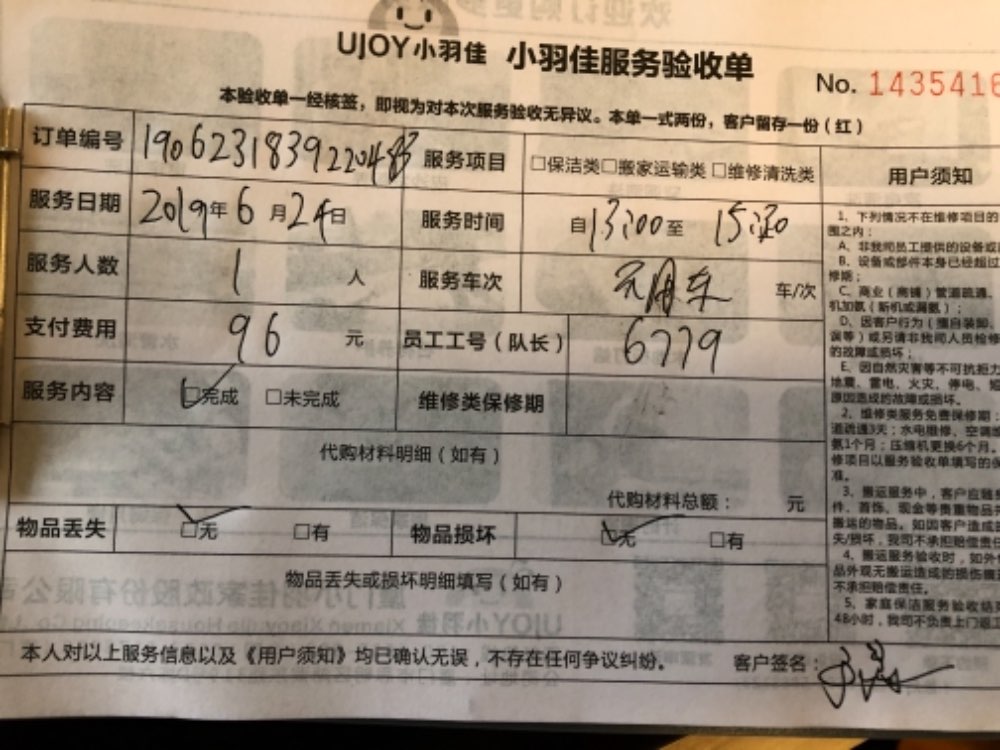 UJOY小羽佳 小羽佳服务验收单
No. 1435416
本验收单一经核签，即视为对本次服务验收无异议。本单一式两份，客户留存一份（红）
订单编号 服务项目 □保洁类□搬家运输类□维修清洗类 用户须知
服务日期 2019年6月24日 服务时间 自13:00至15:30
服务人数 1人 服务车次 车/次
支付费用 96元 员工工号（队长） 6779
服务内容 □完成 □未完成 维修类保修期
代购材料明细（如有）
代购材料总额： 元
物品丢失 □无 □有 物品损坏 □无 □有
物品丢失或损坏明细填写（如有）
本人对以上服务信息以及《用户须知》均已确认无误，不存在任何争议纠纷。 客户签名：
1、下列情况不在维修项目的
围之内：
A、非我司员工提供的设备或
B、设备或部件本身已经超过
修期；
C、商业（商铺）管道疏通、
机加氨（新机或漏氨）；
D、因客户行为（擅自装卸、
误等）或另请非我司人员检修
的故障或损坏；
E、因自然灾害等不可抗拒力
地震、雷电、火灾、停电、短
原因造成的故障或损坏。
2、维修类服务免费保修期：
道疏通3天；水电维修、空调
氨1个月；压缩机更换6个月。
修项目以服务验收单填写的保
准。
3、搬运服务中，客户应随
件、首饰、现金等贵重物品
搬运的物品。如因客户造成
失/损坏，我司不承担赔偿责任
4、搬运服务验收时，如外
品外观无搬运造成的损伤
不承担赔偿责任。
5、家庭保洁服务验收结
48小时，我司不负责上门返工